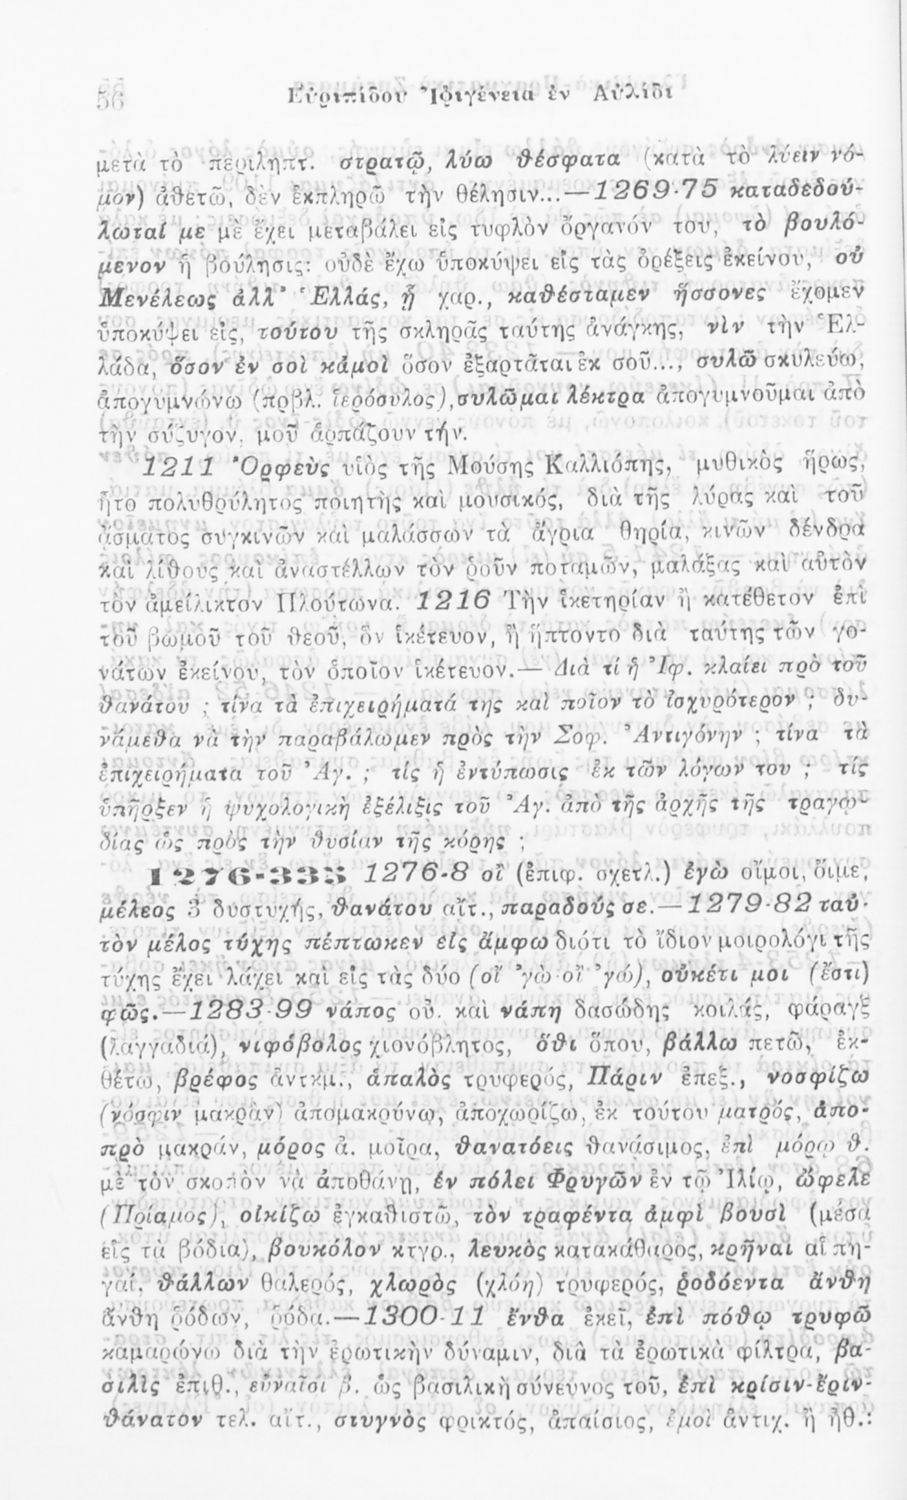 56 Εὐριπίδου Ἰφιγένεια ἐν Αὐλίδι
μετὰ τὸ περιληπτ. στρατῷ, λύω θέσφατα (κατὰ τὸ λύειν νό-
μον) ἀθετῶ, δὲν ἐκπληρῶ τὴν θέλησιν...—1269-75 καταδεδού-
λωταί με μὲ ἔχει μεταβάλει εἰς τυφλὸν ὄργανόν του, τὸ βουλό-
μενον ἡ βούλησις: οὐδὲ ἔχω ὑποκύψει εἰς τὰς ὀρέξεις ἐκείνου, οὐ
Μενέλεως ἀλλ' Ἑλλάς, ᾗ χαρ., καθέσταμεν ἥσσονες ἔχομεν
ὑποκύψει εἰς, τούτου τῆς σκληρᾶς ταύτης ἀνάγκης, νὶν τὴν Ἑλ-
λάδα, ὅσον ἐν σοὶ κἀμοὶ ὅσον ἐξαρτᾶται ἐκ σοῦ..., συλῶ σκυλεύω,
ἀπογυμνώνω (πρβλ. ἱερόσυλος), συλῶμαι λέκτρα ἀπογυμνοῦμαι ἀπὸ
τὴν σύζυγον, μοῦ ἁρπάζουν τήν.
1211 Ὀρφεὺς υἱὸς τῆς Μούσης Καλλιόπης, μυθικὸς ἥρως,
ἦτο πολυθρύλητος ποιητὴς καὶ μουσικός, διὰ τῆς λύρας καὶ τοῦ
ᾄσματος συγκινῶν καὶ μαλάσσων τὰ ἄγρια θηρία, κινῶν δένδρα
καὶ λίθους καὶ ἀναστέλλων τὸν ῥοῦν ποταμῶν, μαλάξας καὶ αὐτὸν
τὸν ἀμείλικτον Πλούτωνα. 1216 Τὴν ἱκετηρίαν ἢ κατέθετον ἐπὶ
τοῦ βωμοῦ τοῦ θεοῦ, ὃν ἱκέτευον, ἢ ἥπτοντο διὰ ταύτης τῶν γο-
νάτων ἐκείνου, τὸν ὁποῖον ἱκέτευον.— Διὰ τί ἡ Ἰφ. κλαίει πρὸ τοῦ
θανάτου ; τίνα τὰ ἐπιχειρήματά της καὶ ποῖον τὸ ἰσχυρότερον ; δυ-
νάμεθα νὰ τὴν παραβάλωμεν πρὸς τὴν Σοφ. Ἀντιγόνην ; τίνα τὰ
ἐπιχειρήματα τοῦ Ἀγ. ; τίς ἡ ἐντύπωσις ἐκ τῶν λόγων του ; τίς
ὑπῆρξεν ἡ ψυχολογικὴ ἐξέλιξις τοῦ Ἀγ. ἀπὸ τῆς ἀρχῆς τῆς τραγῳ-
δίας ὡς πρὸς τὴν θυσίαν τῆς κόρης ;
1276-335 1276-8 οἲ (ἐπιφ. σχετλ.) ἐγὼ οἴμοι, ὄιμε,
μέλεος 3 δυστυχής, θανάτου αἰτ., παραδούς σε.—1279-82 ταὐ-
τὸν μέλος τύχης πέπτωκεν εἰς ἄμφω διότι τὸ ἴδιον μοιρολόγι τῆς
τύχης ἔχει λάχει καὶ εἰς τὰς δύο (οἲ 'γὼ οἲ 'γώ), οὐκέτι μοι (ἔστι)
φῶς.—1283-99 νάπος οὐ. καὶ νάπη δασώδης κοιλάς, φάραγξ
(λαγγαδιά), νιφόβολος χιονόβλητος, ὅθι ὅπου, βάλλω πετῶ, ἐκ-
θέτω, βρέφος ἀντκμ., ἁπαλὸς τρυφερός, Πάριν ἐπεξ., νοσφίζω
(νόσφιν μακρὰν) ἀπομακρύνω, ἀποχωρίζω, ἐκ τούτου ματρός, ἀπο-
πρὸ μακράν, μόρος ἀ. μοῖρα, θανατόεις θανάσιμος, ἐπὶ μόρῳ θ.
μὲ τὸν σκοπὸν νὰ ἀποθάνῃ, ἐν πόλει Φρυγῶν ἐν τῷ Ἰλίῳ, ὤφελε
(Πρίαμος), οἰκίζω ἐγκαθιστῶ, τὸν τραφέντα ἀμφὶ βουσὶ (μέσα
εἰς τὰ βόδια), βουκόλον κτγρ., λευκὸς κατακάθαρος, κρῆναι αἱ πη-
γαί, θάλλων θαλερός, χλωρὸς (χλόη) τρυφερός, ῥοδόεντα ἄνθη
ἄνθη ῥόδων, ῥόδα.—1300-11 ἔνθα ἐκεῖ, ἐπὶ πόθῳ τρυφῶ
καμαρώνω διὰ τὴν ἐρωτικὴν δύναμιν, διὰ τὰ ἐρωτικὰ φίλτρα, βα-
σιλὶς ἐπιθ., εὐναῖσι β. ὡς βασιλικὴ σύνευνος τοῦ, ἐπὶ κρίσιν-ἔριν-
θάνατον τελ. αἰτ., στυγνὸς φρικτός, ἀπαίσιος, ἐμοὶ ἀντιχ. ἢ ἠθ.: